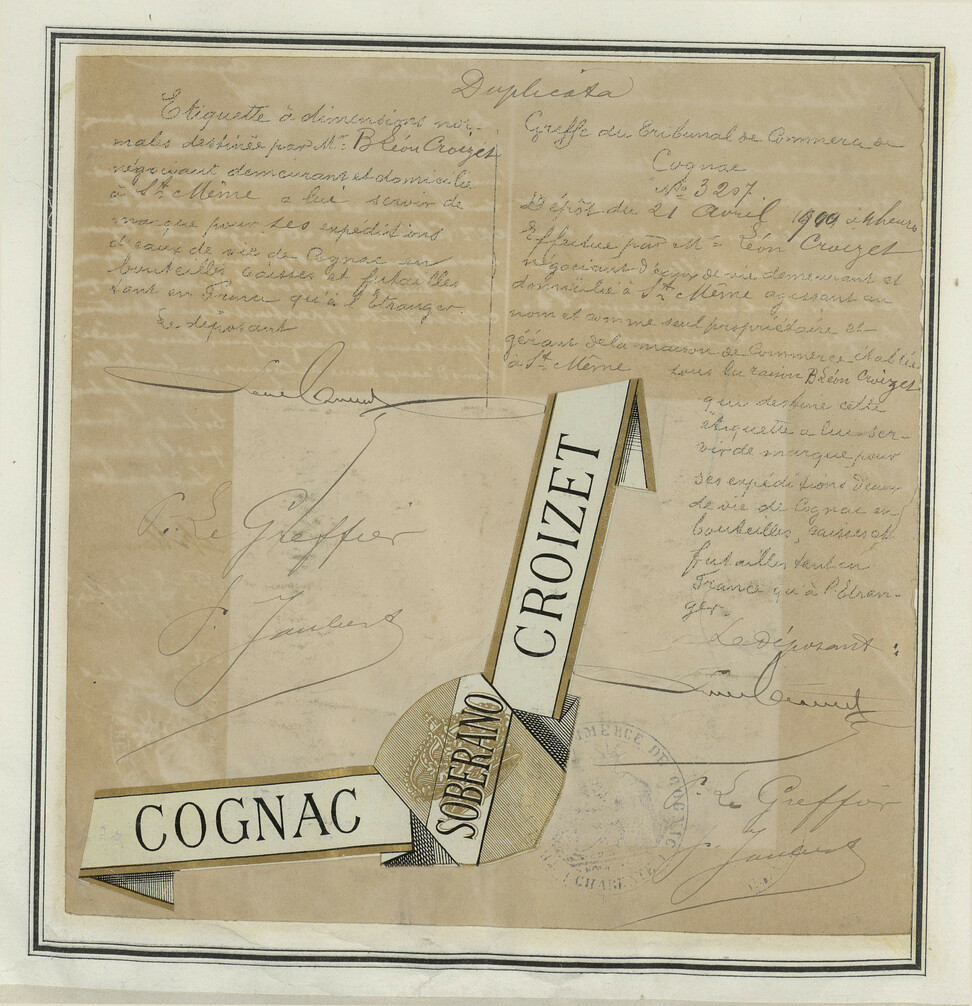 Duplicata
Etiquette à dimensions nor-
males destinée par Mr. B Léon Croizet
négociant demeurant et domicilié
à St. Même a lui servir de
marque pour ses expéditions
d'eaux de vie de Cognac en
bouteilles caisses et futailles
tant en France qu'à l'Etranger.
Le déposant
P. Le Greffier
J. Jaubert
Greffe du Tribunal de Commerce de
Cognac
No 3207
Dépôt du 21 Avril 1900 à heures
Effectué par Mr. Léon Croizet
négociant d'eaux de vie demeurant et
domicilié à St. Même agissant au
nom et comme seul propriétaire et
gérant de la maison de Commerce établie
à St. Même sous la raison B Léon Croizet
qui destine cette
étiquette a lui ser-
vir de marque pour
ses expéditions d'eaux
de vie de Cognac en
bouteilles, caisses et
futailles tant en
France qu'à l'Etran-
ger.
Le déposant :
P. Le Greffier
J. Jaubert
COGNAC
SOBERANO
CROIZET
COMMERCE DE COGNAC
CHARENTE